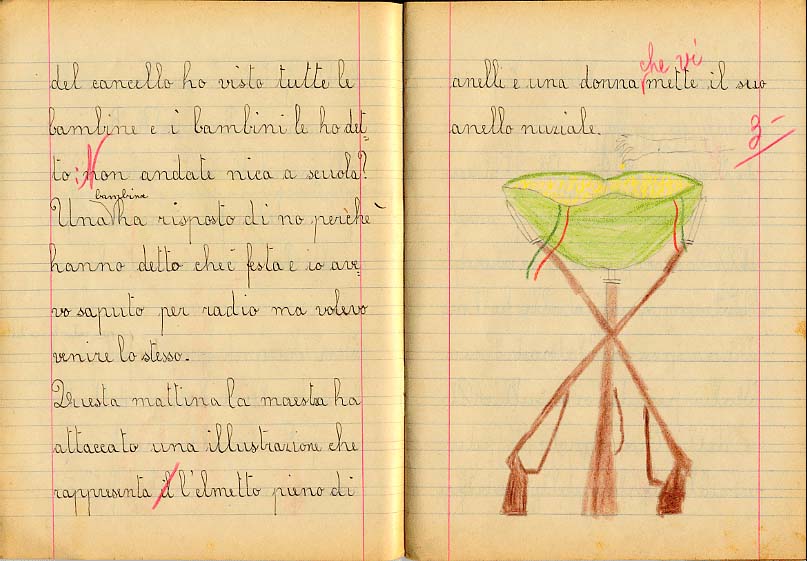 del cancello ho visto tutte le
bambine e i bambini le ho det-
to: Non andate nica a scuola?
bambina
Una ha risposto di no perchè
hanno detto che è festa e io ave-
vo saputo per radio ma volevo
venire lo stesso.
Questa mattina la maestra ha
attaccato una illustrazione che
rappresenta il l'elmetto pieno di
che vi
anelli e una donna mette il suo
anello nuziale.
3-